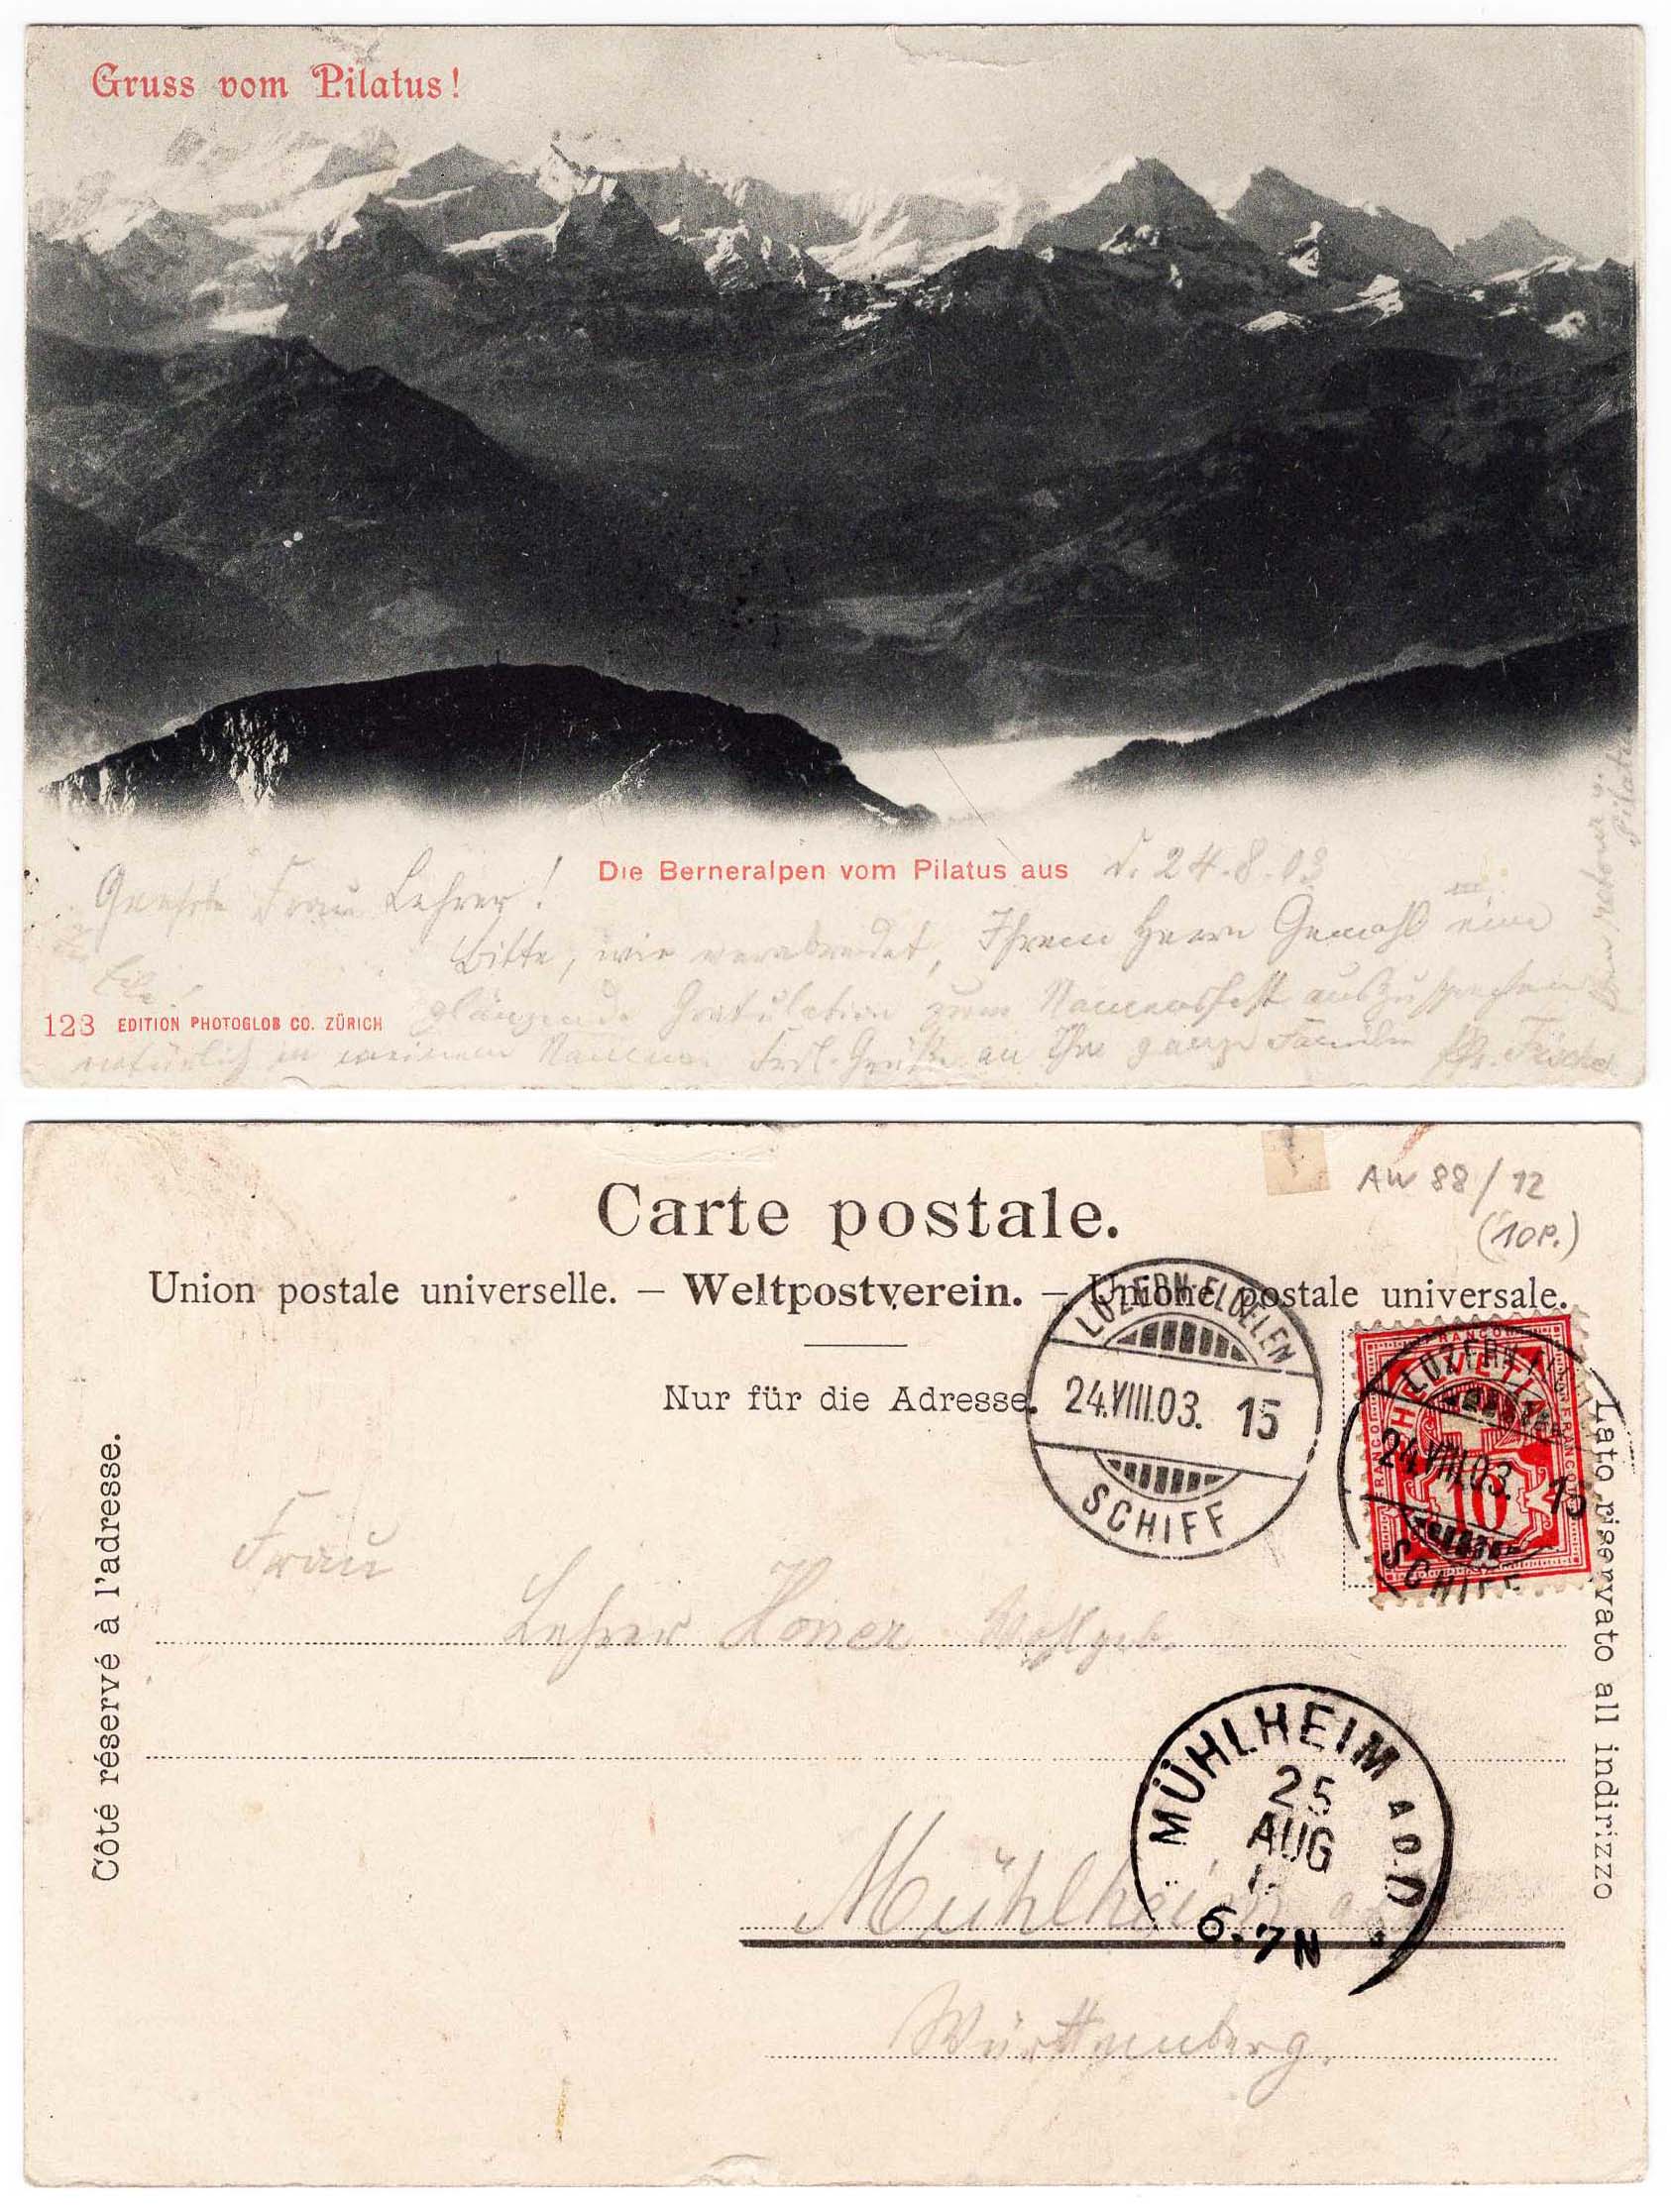 Gruss vom Pilatus!
Die Berneralpen vom Pilatus aus
d. 24.8.03
Geehrte Frau Lehrer!
Bitte, wie verabredet, Ihrem Herrn Gemahl eine
glänzende Gratulation zum Namensfest auszusprechen
natürlich in meinem Namen. Frdl. Grüße an Ihre ganze Familie
Eile!
Pilatus
123 EDITION PHOTOGLOB CO. ZÜRICH
Carte postale.
AW 88/12
(10P.)
Union postale universelle. – Weltpostverein. – Unione postale universale.
Nur für die Adresse.
Côté réservé à l'adresse.
Lato riservato all indirizzo
LUZERN-FLÜELEN
24.VIII.03. 15
SCHIFF
FRANCO
HELVETIA
10
LUZERN-FL
24.VIII.03. 15
SCHIFF
Frau
Lehrer Honer Wohlgeb.
MÜHLHEIM A.D.D.
25
AUG
6-7N
Mühlheim a/
Württemberg.